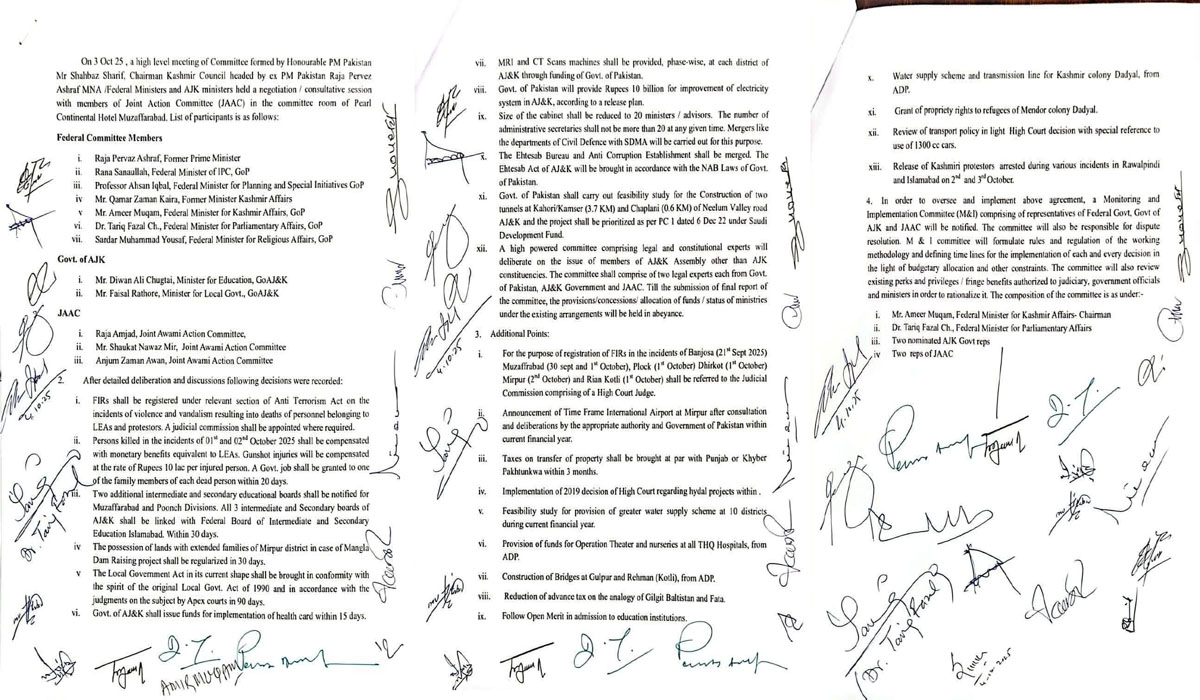 On 3 Oct 25 , a high level meeting of Committee formed by Honourable PM Pakistan
Mr Shahbaz Sharif, Chairman Kashmir Council headed by ex PM Pakistan Raja Pervez
Ashraf MNA /Federal Ministers and AJK ministers held a negotiation / consultative session
with members of Joint Action Committee (JAAC) in the committee room of Pearl
Continental Hotel Muzaffarabad. List of participants is as follows:
Federal Committee Members
i. Raja Pervaz Ashraf, Former Prime Minister
ii. Rana Sanaullah, Federal Minister of IPC, GoP
iii. Professor Ahsan Iqbal, Federal Minister for Planning and Special Initiatives GoP
iv Mr. Qamar Zaman Kaira, Former Minister Kashmir Affairs
v Mr. Ameer Muqam, Federal Minister for Kashmir Affairs, GoP
vi. Dr. Tariq Fazal Ch., Federal Minister for Parliamentary Affairs, GoP
vii. Sardar Muhammad Yousaf, Federal Minister for Religious Affairs, GoP
Govt. of AJK
i. Mr. Diwan Ali Chugtai, Minister for Education, GoAJ&K
ii. Mr. Faisal Rathore, Minister for Local Govt., GoAJ&K
JAAC
i. Raja Amjad, Joint Awami Action Committee,
ii. Mr. Shaukat Nawaz Mir, Joint Awami Action Committee
iii. Anjum Zaman Awan, Joint Awami Action Committee
2. After detailed deliberation and discussions following decisions were recorded:
i. FIRs shall be registered under relevant section of Anti Terrorism Act on
the incidents of violence and vandalism resulting into deaths of personnel belonging to
LEAs and protestors. A judicial commission shall be appointed where required.
ii. Persons killed in the incidents of 01st and 02nd October 2025 shall be compensated
with monetary benefits equivalent to LEAs. Gunshot injuries will be compensated
at the rate of Rupees 10 lac per injured person. A Govt. job shall be granted to one
of the family members of each dead person within 20 days.
iii. Two additional intermediate and secondary educational boards shall be notified for
Muzaffarabad and Poonch Divisions. All 3 intermediate and Secondary boards of
AJ&K shall be linked with Federal Board of Intermediate and Secondary
Education Islamabad. Within 30 days.
iv The possession of lands with extended families of Mirpur district in case of Mangla
Dam Raising project shall be regularized in 30 days.
v The Local Government Act in its current shape shall be brought in conformity with
the spirit of the original Local Govt. Act of 1990 and in accordance with the
judgments on the subject by Apex courts in 90 days.
vi. Govt. of AJ&K shall issue funds for implementation of health card within 15 days.
4.10.25
Dr. Tariq Fazal
AMIR MUQAM
vii. MRI and CT Scans machines shall be provided, phase-wise, at each district of
AJ&K through funding of Govt. of Pakistan.
viii. Govt. of Pakistan will provide Rupees 10 billion for improvement of electricity
system in AJ&K, according to a release plan.
ix. Size of the cabinet shall be reduced to 20 ministers / advisors. The number of
administrative secretaries shall not be more than 20 at any given time. Mergers like
the departments of Civil Defence with SDMA will be carried out for this purpose.
x. The Ehtesab Bureau and Anti Corruption Establishment shall be merged. The
Ehtesab Act of AJ&K will be brought in accordance with the NAB Laws of Govt.
of Pakistan.
xi. Govt. of Pakistan shall carry out feasibility study for the Construction of two
tunnels at Kahori/Kamser (3.7 KM) and Chaplani (0.6 KM) of Neelum Valley road
AJ&K and the project shall be prioritized as per PC 1 dated 6 Dec 22 under Saudi
Development Fund.
xii. A high powered committee comprising legal and constitutional experts will
deliberate on the issue of members of AJ&K Assembly other than AJK
constituencies. The committee shall comprise of two legal experts each from Govt.
of Pakistan, AJ&K Government and JAAC. Till the submission of final report of
the committee, the provisions/concessions/ allocation of funds / status of ministries
under the existing arrangements will be held in abeyance.
3. Additional Points:
i. For the purpose of registration of FIRs in the incidents of Banjosa (21st Sept 2025)
Muzafrabad (30 sept and 1st October), Plock (1st October) Dhirkot (1st October)
Mirpur (2nd October) and Rian Kotli (1st October) shall be referred to the Judicial
Commission comprising of a High Court Judge.
ii. Announcement of Time Frame International Airport at Mirpur after consultation
and deliberations by the appropriate authority and Government of Pakistan within
current financial year.
iii. Taxes on transfer of property shall be brought at par with Punjab or Khyber
Pakhtunkwa within 3 months.
iv. Implementation of 2019 decision of High Court regarding hydal projects within .
v. Feasibility study for provision of greater water supply scheme at 10 districts
during current financial year.
vi. Provision of funds for Operation Theater and nurseries at all THQ Hospitals, from
ADP.
vii. Construction of Bridges at Gulpur and Rehman (Kotli), from ADP.
viii. Reduction of advance tax on the analogy of Gilgit Baltistan and Fata.
ix. Follow Open Merit in admission to education institutions.
4.10.25
x. Water supply scheme and transmission line for Kashmir colony Dadyal, from
ADP.
xi. Grant of propriety rights to refugees of Mendor colony Dadyal.
xii. Review of transport policy in light High Court decision with special reference to
use of 1300 cc cars.
xiii. Release of Kashmiri protestors arrested during various incidents in Rawalpindi
and Islamabad on 2nd and 3rd October.
4. In order to oversee and implement above agreement, a Monitoring and
Implementation Committee (M&I) comprising of representatives of Federal Govt, Govt of
AJK and JAAC will be notified. The committee will also be responsible for dispute
resolution. M & I committee will formulate rules and regulation of the working
methodology and defining time lines for the implementation of each and every decision in
the light of budgetary allocation and other constraints. The committee will also review
existing perks and privileges / fringe benefits authorized to judiciary, government officials
and ministers in order to rationalize it. The composition of the committee is as under:-
i. Mr. Ameer Muqam, Federal Minister for Kashmir Affairs- Chairman
ii. Dr. Tariq Fazal Ch., Federal Minister for Parliamentary Affairs
iii. Two nominated AJK Govt reps
iv Two reps of JAAC
4.10.25
Dr. Tariq Fazal
4.10.2025